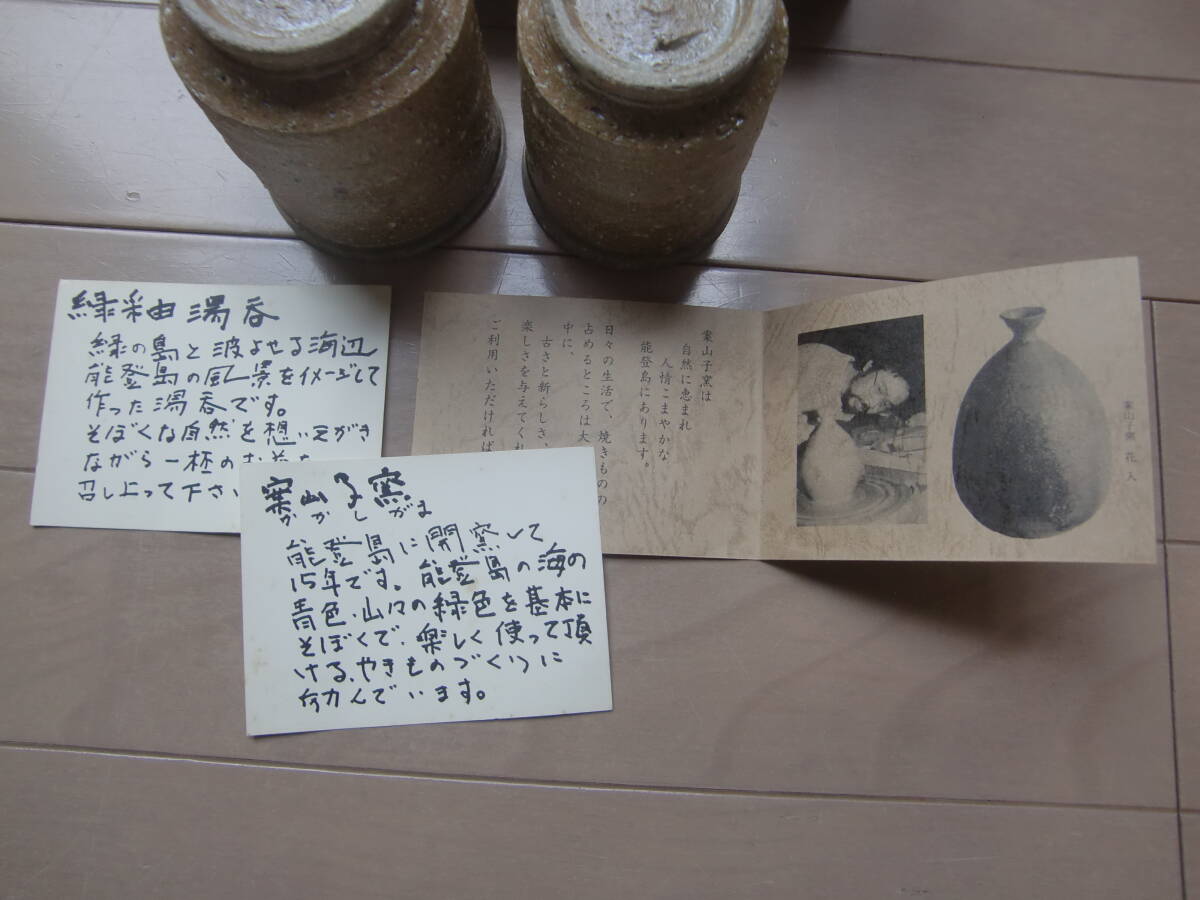 緑釉湯呑
緑の島と波よせる海辺
能登島の風景をイメージして
作った湯呑です。
そぼくな自然を想いえがき
ながら一杯のお茶
召し上って下さい
案山子窯
かかしがま
能登島に開窯して
15年です。能登島の海の
青色、山々の緑色を基本に
そぼくで、楽しく使って頂
ける、やきものづくりに
努力んでいます。
案山子窯は
自然に恵まれ
人情こまやかな
能登島にあります。
日々の生活で、焼きものの
占めるところは大
中に、
古さと新らしさ、
楽しさを与えてくれ
ご利用いただければ
案山子窯 花入